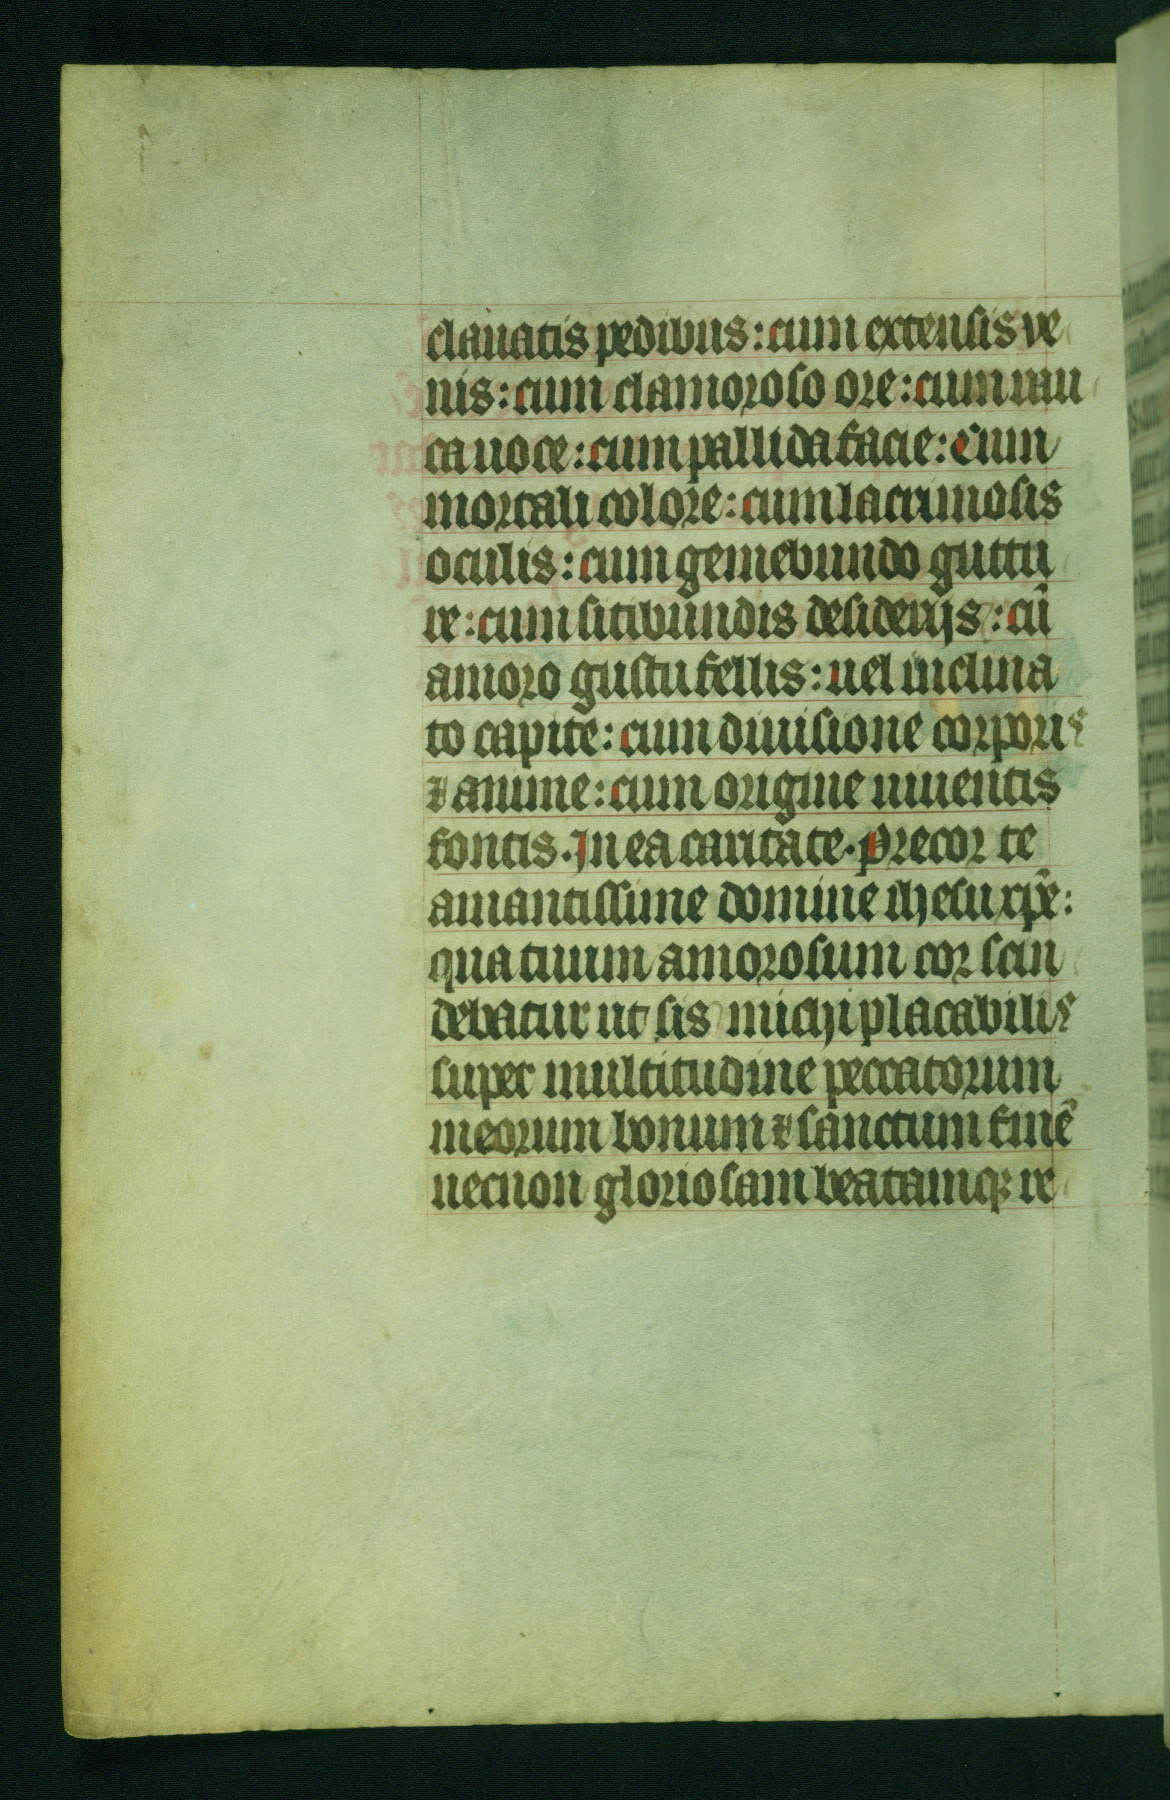 clauatis pedibus : cum extensis ve
nis : cum clamoroso ore : cum rau
ca uoce : cum pallida facie : Cum
mortali colore : cum lacrimosis
oculis : cum gemebundo guttu
re : cum sitibundis desiderijs : cū
amoro gustu fellis : uel inclina
to capite : cum diuisione corporis
⁊ anime : cum origine uiuentis
fontis . In ea caritate . Precor te
amantissime domine ihesu xp̄e :
qua tuum amorosum cor scin
debatur ut sis michi placabilis
super multitudine peccatorum
meorum bonum ⁊ sanctum finē
necnon gloriosam beatamqꝫ re